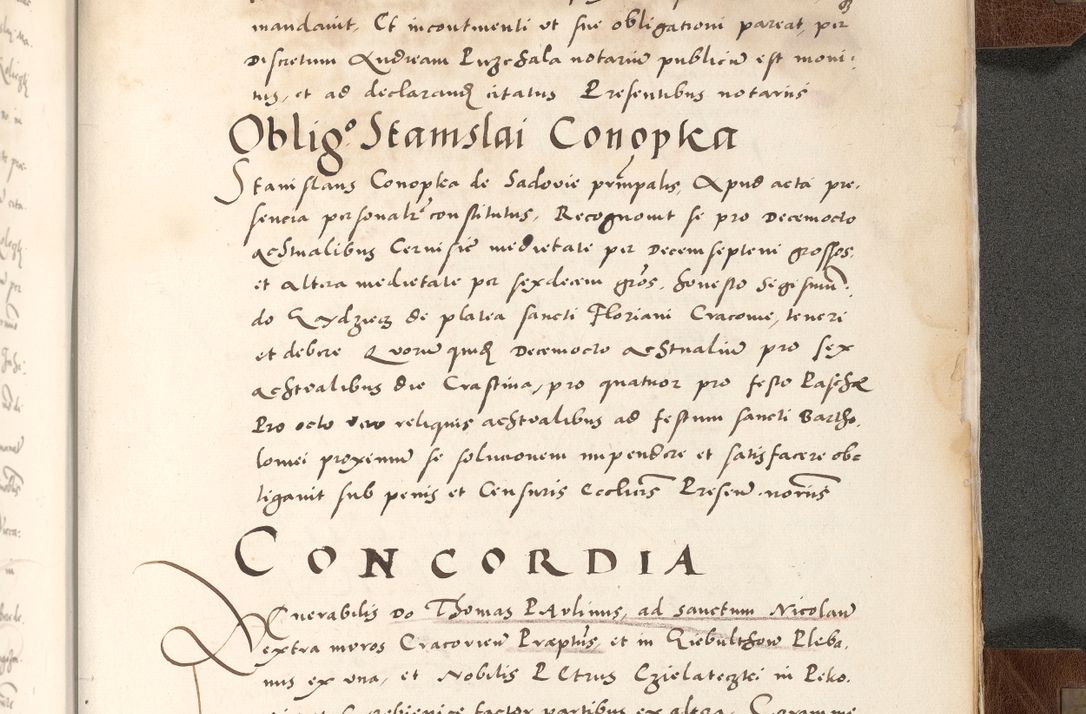 mandavit, Et incontinenti ut sue obligationi pareat, per
Discretum Andream Ruzchala notariu publicu est moni:
tus, et ad declarand citatus Presentibus notariis
Oblig.o Stanislai Conopka
Stanislaus Conopka de Sadovie principalis, Apud acta pre,
sencia personalr constitutus, Recognovit se pro Decemocto
achtualibus Cervisie medietate per Decemsepteni grossos,
et altera medietate per sexdecem gros, honesto Segismu:
do de platea sancti Floriani Cracovie, teneri
et debere Quoru quid Decemocto achtualiu pro sex
achtvalibus die Crastina, pro quatuor pro festo Paschae
Pro octo vero reliquis achtvalibus ad festum sancti Bartho,
lomei proximu se solucionem inpendere et satisfacere obe
ligavit sub penis et Censuris Ecclicis Presen norius
CONCORDIA
Venerabilis Do Thomas PAvlinus, ad sanctum Nicolau
extra mvros Cracovien Praeptus, et in Giebulthow Pleba,
nus ex vna, et Nobilis PEtrus Czielateczki in Peko,
factor partibus ex altra,